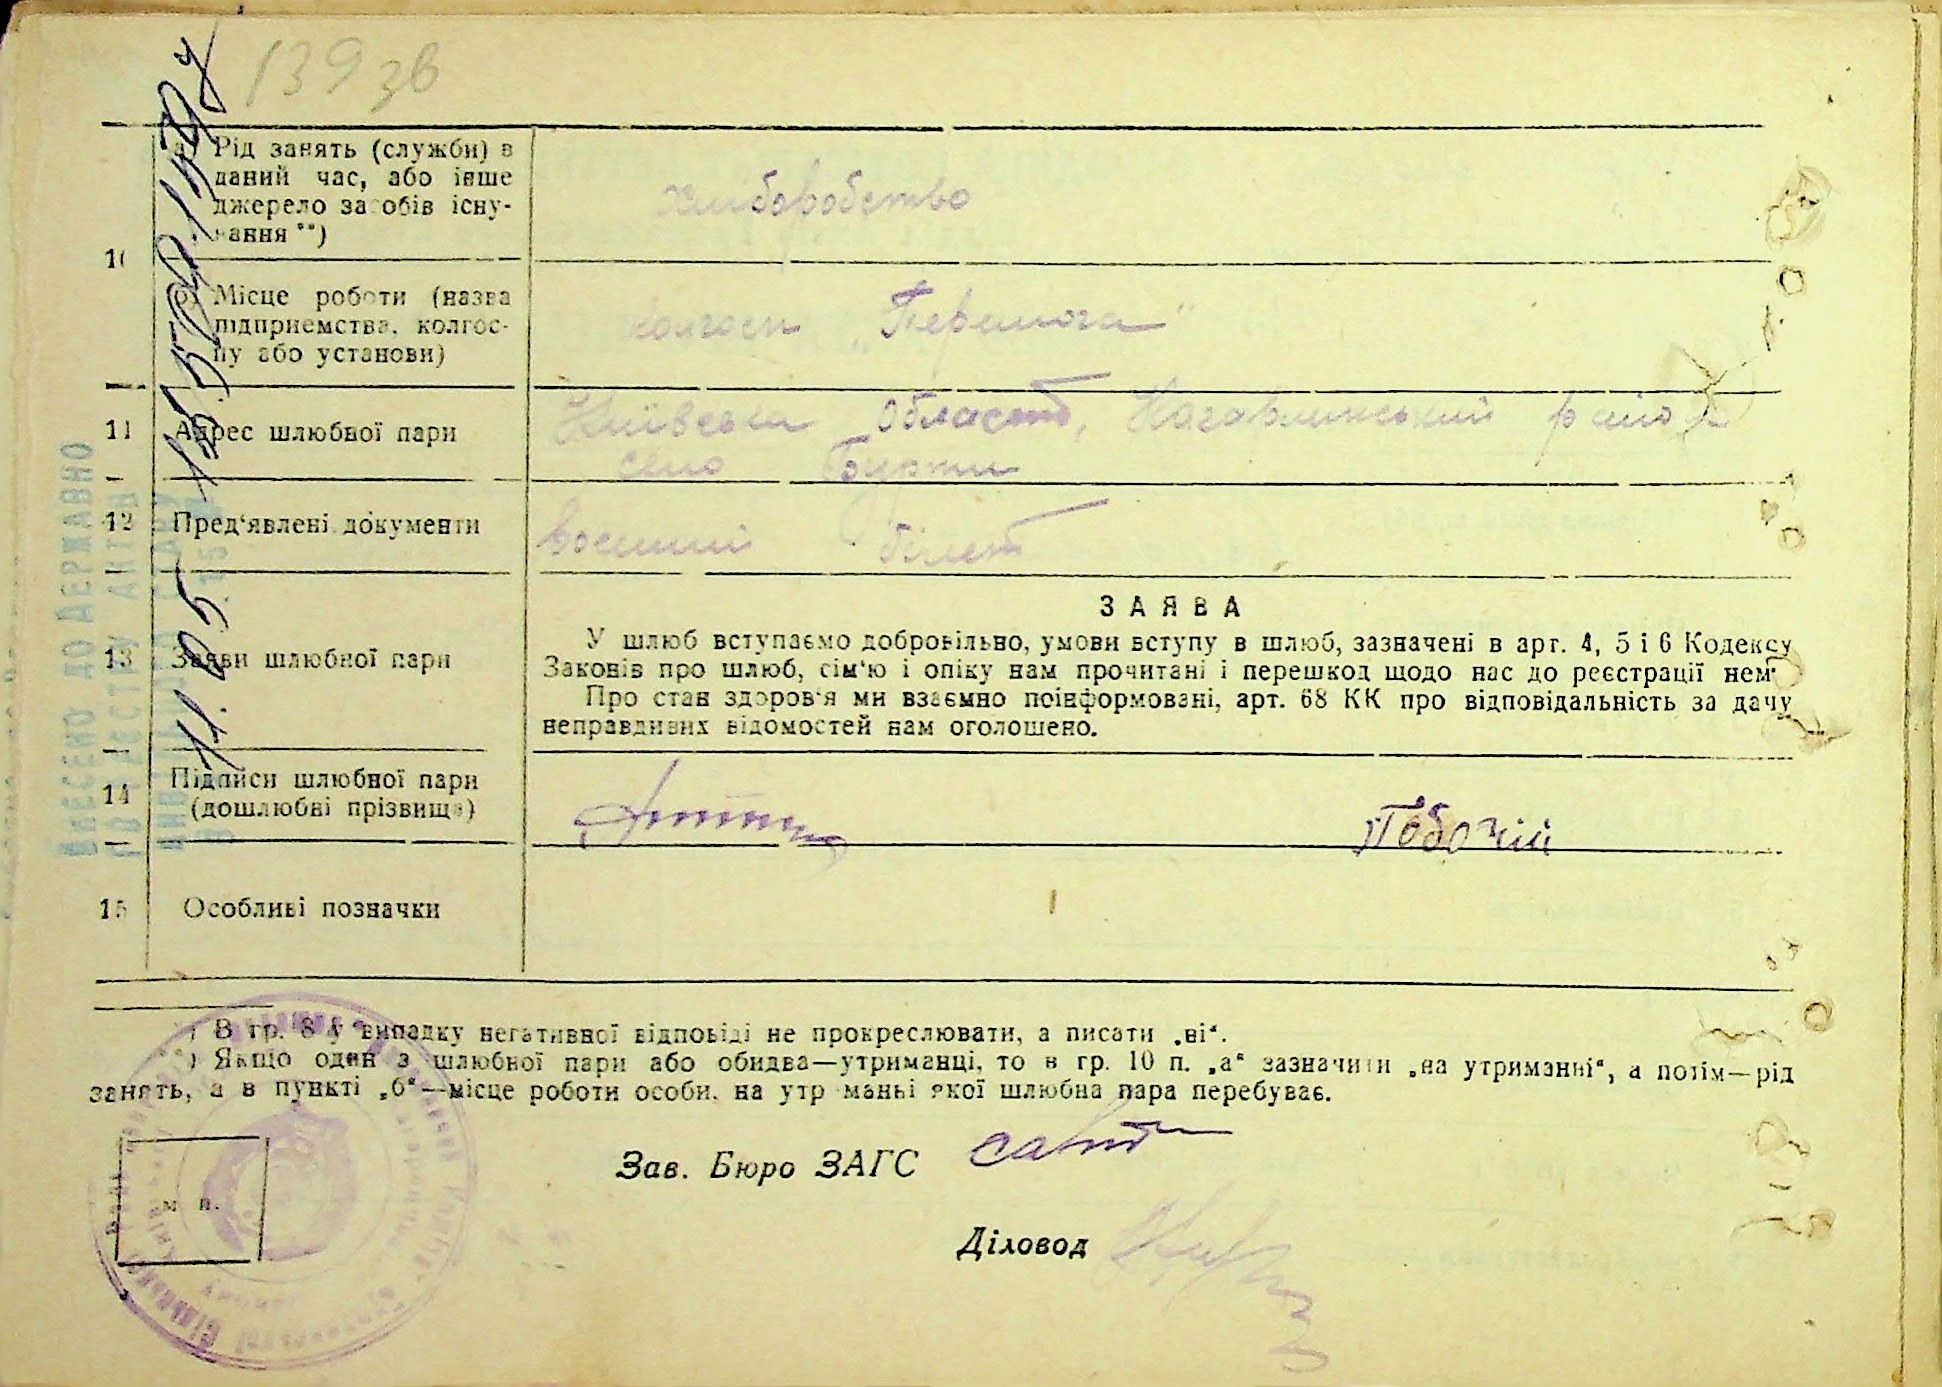 139 зв
10
а) Рід занять (служби) в
даний час, або інше
джерело засобів існу-
вання **)
хліборобство
б) Місце роботи (назва
підприємства, колгос-
пу або установи)
колгосп „Перемога"
11
Адрес шлюбної пари
Київська область, Кагарлицький район
село Бурти
12
Пред'явлені документи
воєнний білет
13
Заяви шлюбної пари
ЗАЯВА
У шлюб вступаємо добровільно, умови вступу в шлюб, зазначені в арт. 4, 5 і 6 Кодексу
Законів про шлюб, сім'ю і опіку нам прочитані і перешкод щодо нас до реєстрації нема
Про стан здоров'я ми взаємно поінформовані, арт. 68 КК про відповідальність за дачу
неправдивих відомостей нам оголошено.
14
Підписи шлюбної пари
(дошлюбні прізвища)
Побочій
15
Особливі позначки
*) В гр. 8 у випадку негативної відповіді не прокреслювати, а писати „ні“.
**) Якщо один з шлюбної пари або обидва—утриманці, то в гр. 10 п. „а“ зазначити „на утриманні“, а потім—рід
занять, а в пункті „б“—місце роботи особи, на утриманні якої шлюбна пара перебуває.
м п.
Зав. Бюро ЗАГС
Діловод
ВНЕСЕНО ДО ДЕРЖАВНО